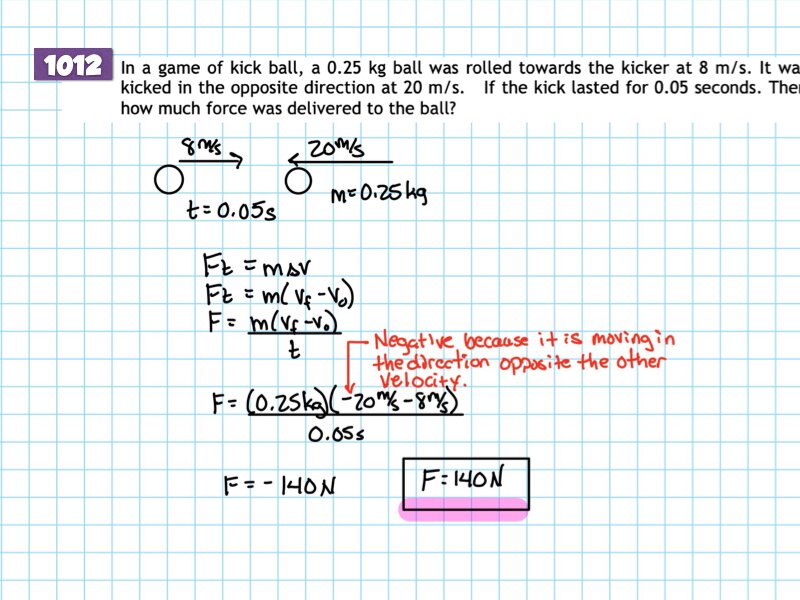 1012
In a game of kick ball, a 0.25 kg ball was rolled towards the kicker at 8 m/s. It wa
kicked in the opposite direction at 20 m/s. If the kick lasted for 0.05 seconds. Then
how much force was delivered to the ball?
8 m/s
20 m/s
t = 0.05s
m = 0.25 kg
Ft = mΔv
Ft = m(vf - vo)
F = m(vf - vo)
t
Negative because it is moving in
the direction opposite the other
velocity.
F = (0.25kg)(-20 m/s - 8 m/s)
0.05s
F = - 140 N
F = 140 N